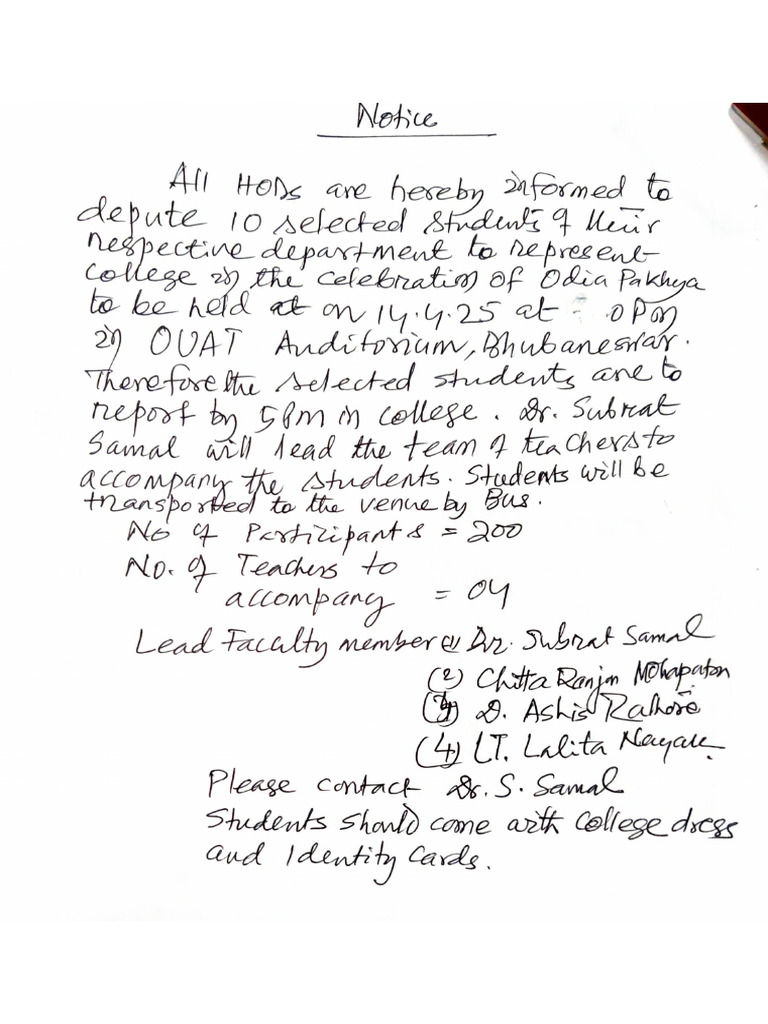 Notice
All HODs are hereby informed to
depute 10 selected students of their
respective department to represent
college in the celebration of Odia Pakhya
to be held at on 14.4.25 at 0Pm
in OUAT Auditorium, Bhubaneswar.
Therefore the selected students are to
report by 5Pm in college. Dr. Subrat
Samal will lead the team of teachers to
accompany the students. Students will be
transported to the venue by Bus.
No of Participants = 200
No. of Teachers to
accompany = 04
Lead Faculty member (1) Dr. Subrat Samal
(2) Chitta Ranjan
(3) D. Ashis Rathore
(4) LT. Lalita Nayak
Please contact Dr. S. Samal
Students should come with college dress
and Identity Cards.